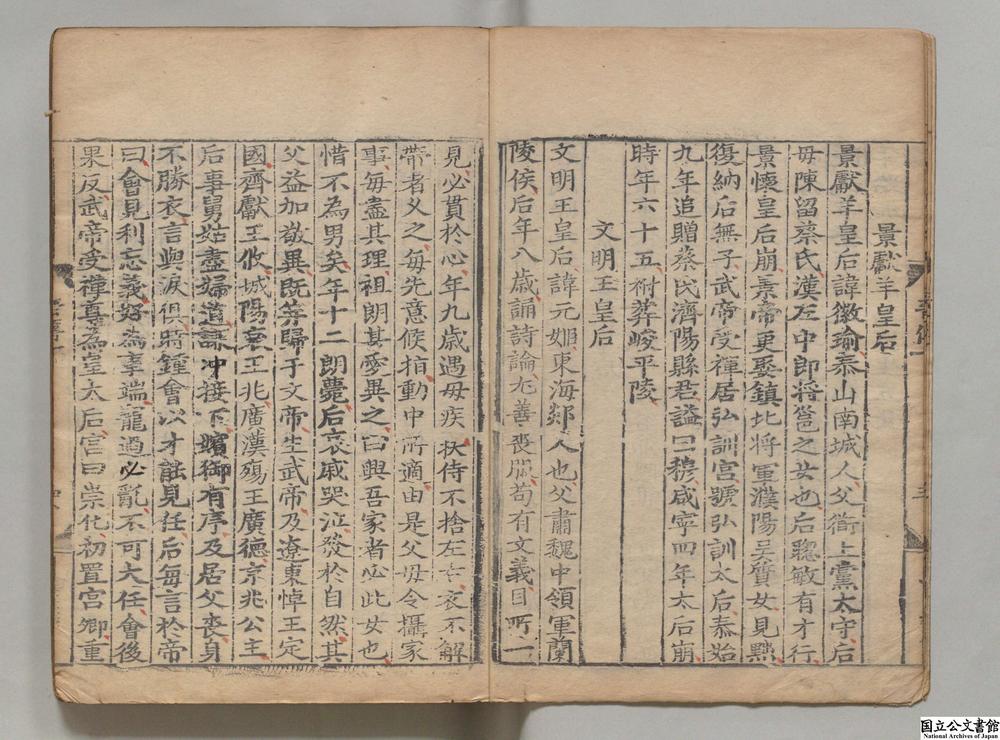 景獻羊皇后
景獻羊皇后諱徽瑜泰山南城人父衜上黨太守后
母陳留蔡氏漢左中郎将邕之女也后聦敏有才行
景懷皇后崩景帝更娶鎮北将軍濮陽吴質女見黜
復納后無子武帝受禪居弘訓宫號弘訓太后泰始
九年追贈蔡氏濟陽縣君謚曰穆咸寧四年太后崩
時年六十五祔葬峻平陵
文明王皇后
文明王皇后諱元姬東海郯人也父肅魏中領軍蘭
陵侯后年八歳誦詩論尤善喪服苟有文義目所一
見必貫於心年九歳遇母疾扶侍不捨左右衣不解
帶者乆之每先意候指動中所適由是父母令攝家
事每盡其理祖朗甚愛異之曰興吾家者必此女也
惜不為男矣年十二朗薨后哀戚哭泣發於自然其
父益加敬異既笄歸于文帝生武帝及遼東悼王定
國齊獻王攸城陽哀王兆廣漢殤王廣德京兆公主
后事舅姑盡婦道謙冲接下嬪御有序及居父喪身
不勝衣言與淚俱時鍾會以才能見任后每言於帝
曰會見利忘義好為事端寵過必亂不可大任會後
果反武帝受禪尊為皇太后宫曰崇化初置宫卿重
国立公文書館
National Archives of Japan